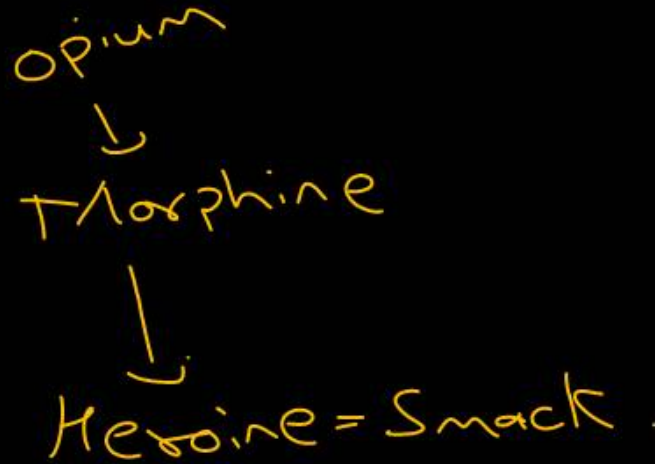 Opium
Morphine
Heroine = Smack.